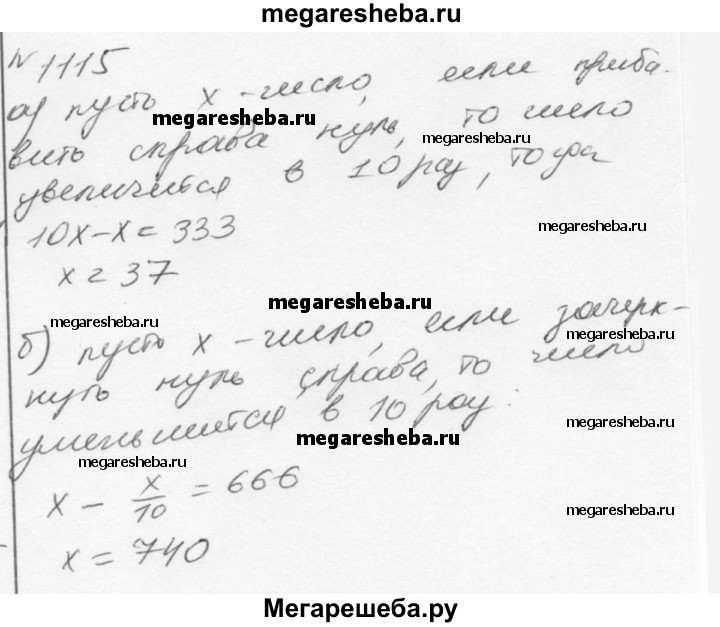 megaresheba.ru
№ 1115
а) пусть x - число, если приба-
megaresheba.ru
вить справа нуль, то число
megaresheba.ru
увеличится в 10 раз, тогда
10x - x = 333
megaresheba.ru
x = 37
megaresheba.ru
megaresheba.ru
б) пусть x - число, если зачерк-
megaresheba.ru
нуть нуль справа, то число
уменьшится в 10 раз.
megaresheba.ru
megaresheba.ru
megaresheba.ru
x - x/10 = 666
megaresheba.ru
x = 740
Мегарешеба.ру